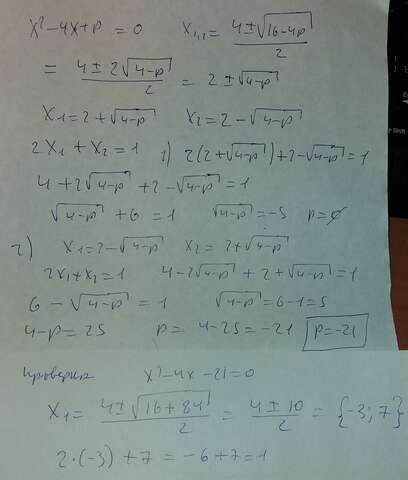 x² - 4x + p = 0    x₁,₂ = (4 ± √(16 - 4p))/2
= (4 ± 2√(4-p))/2 = 2 ± √(4-p)
x₁ = 2 + √(4-p)    x₂ = 2 - √(4-p)
2x₁ + x₂ = 1   1) 2(2 + √(4-p)) + 2 - √(4-p) = 1
4 + 2√(4-p) + 2 - √(4-p) = 1
√(4-p) + 6 = 1    √(4-p) = -5    p = ∅
2) x₁ = 2 - √(4-p)    x₂ = 2 + √(4-p)
2x₁ + x₂ = 1    4 - 2√(4-p) + 2 + √(4-p) = 1
6 - √(4-p) = 1    √(4-p) = 6 - 1 = 5
4 - p = 25    p = 4 - 25 = -21    p = -21
проверка    x² - 4x - 21 = 0
x₁ = (4 ± √(16 + 84))/2 = (4 ± 10)/2 = {-3; 7}
2·(-3) + 7 = -6 + 7 = 1